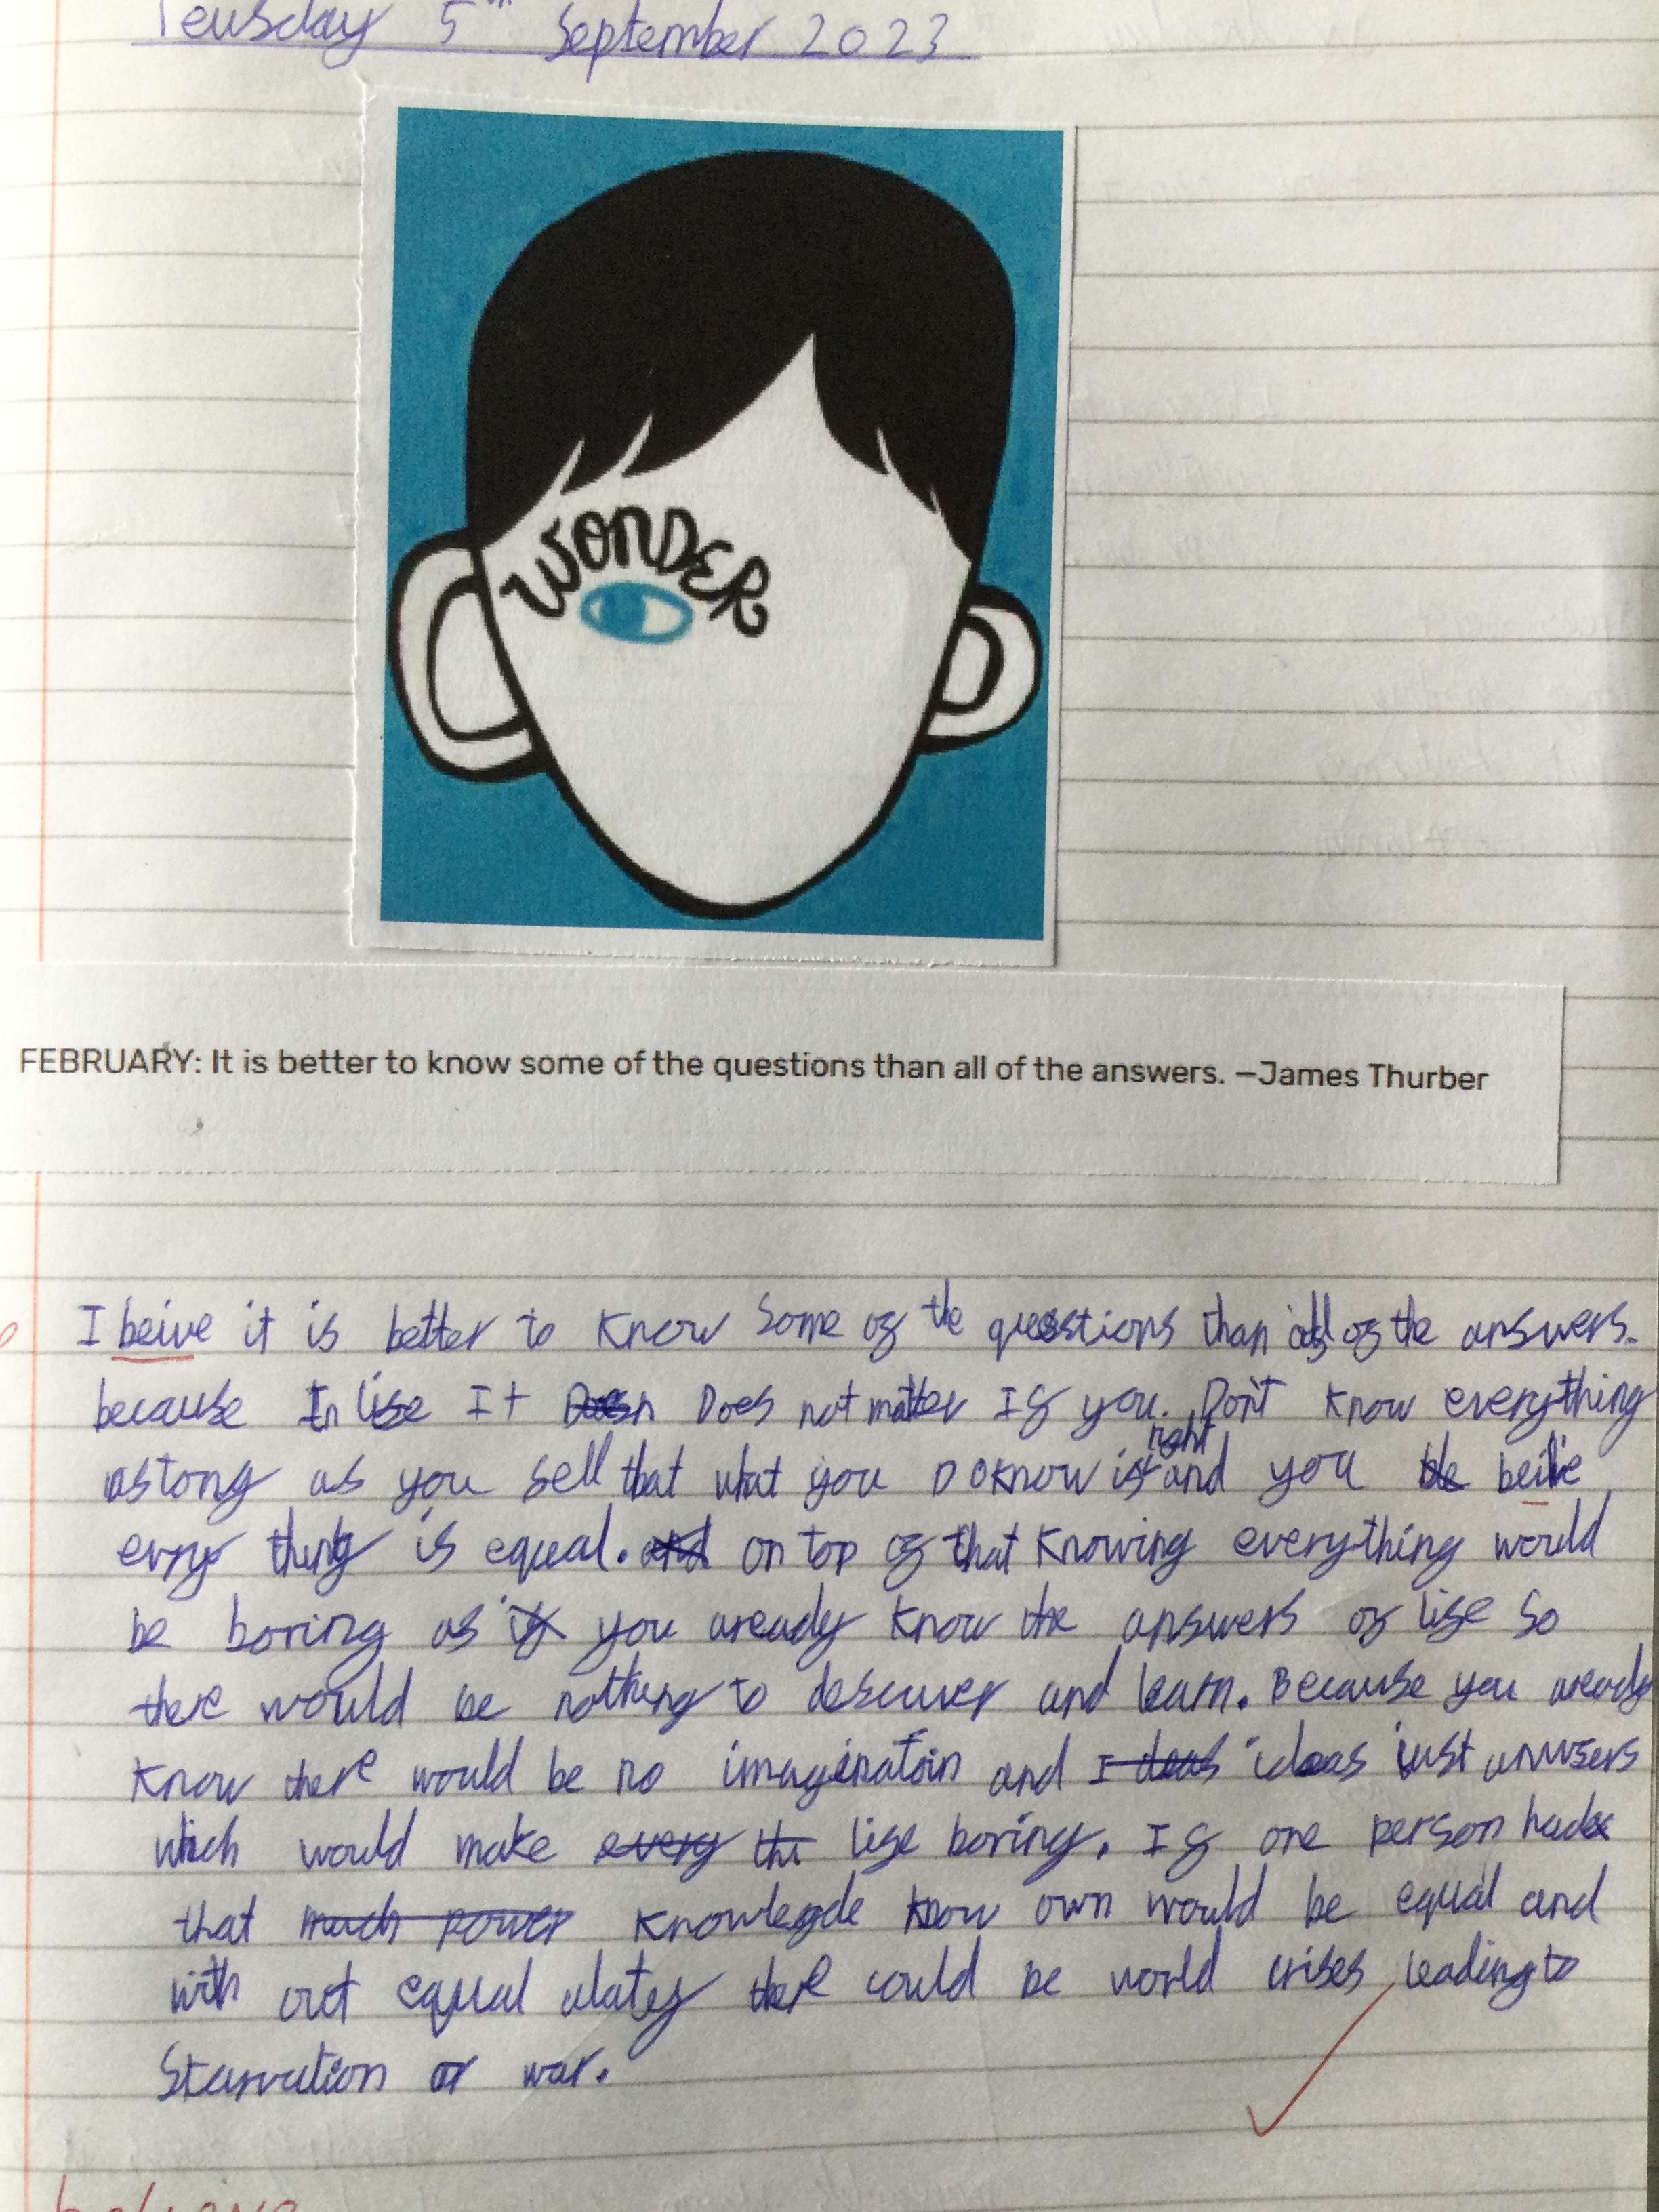 Teusday 5th September 2023
WONDER
FEBRUARY: It is better to know some of the questions than all of the answers. —James Thurber
I beive it is better to know some of the questions than all of the answers.
because In life It Does not matter If you. Don't know everything
aslong as you fell that what you Do know is right and you beilie
evry thing is equal. on top of that knowing everything would
be boring as you aready know the answers of life so
there would be nothing to descuver and learn. Because you aready
know there would be no imaginatoin and ideas just anwsers
which would make life boring. If one person had
that knowlegde know own would be equal and
with out equal alatey there could be world crises leading to
Starvation or war.
believe